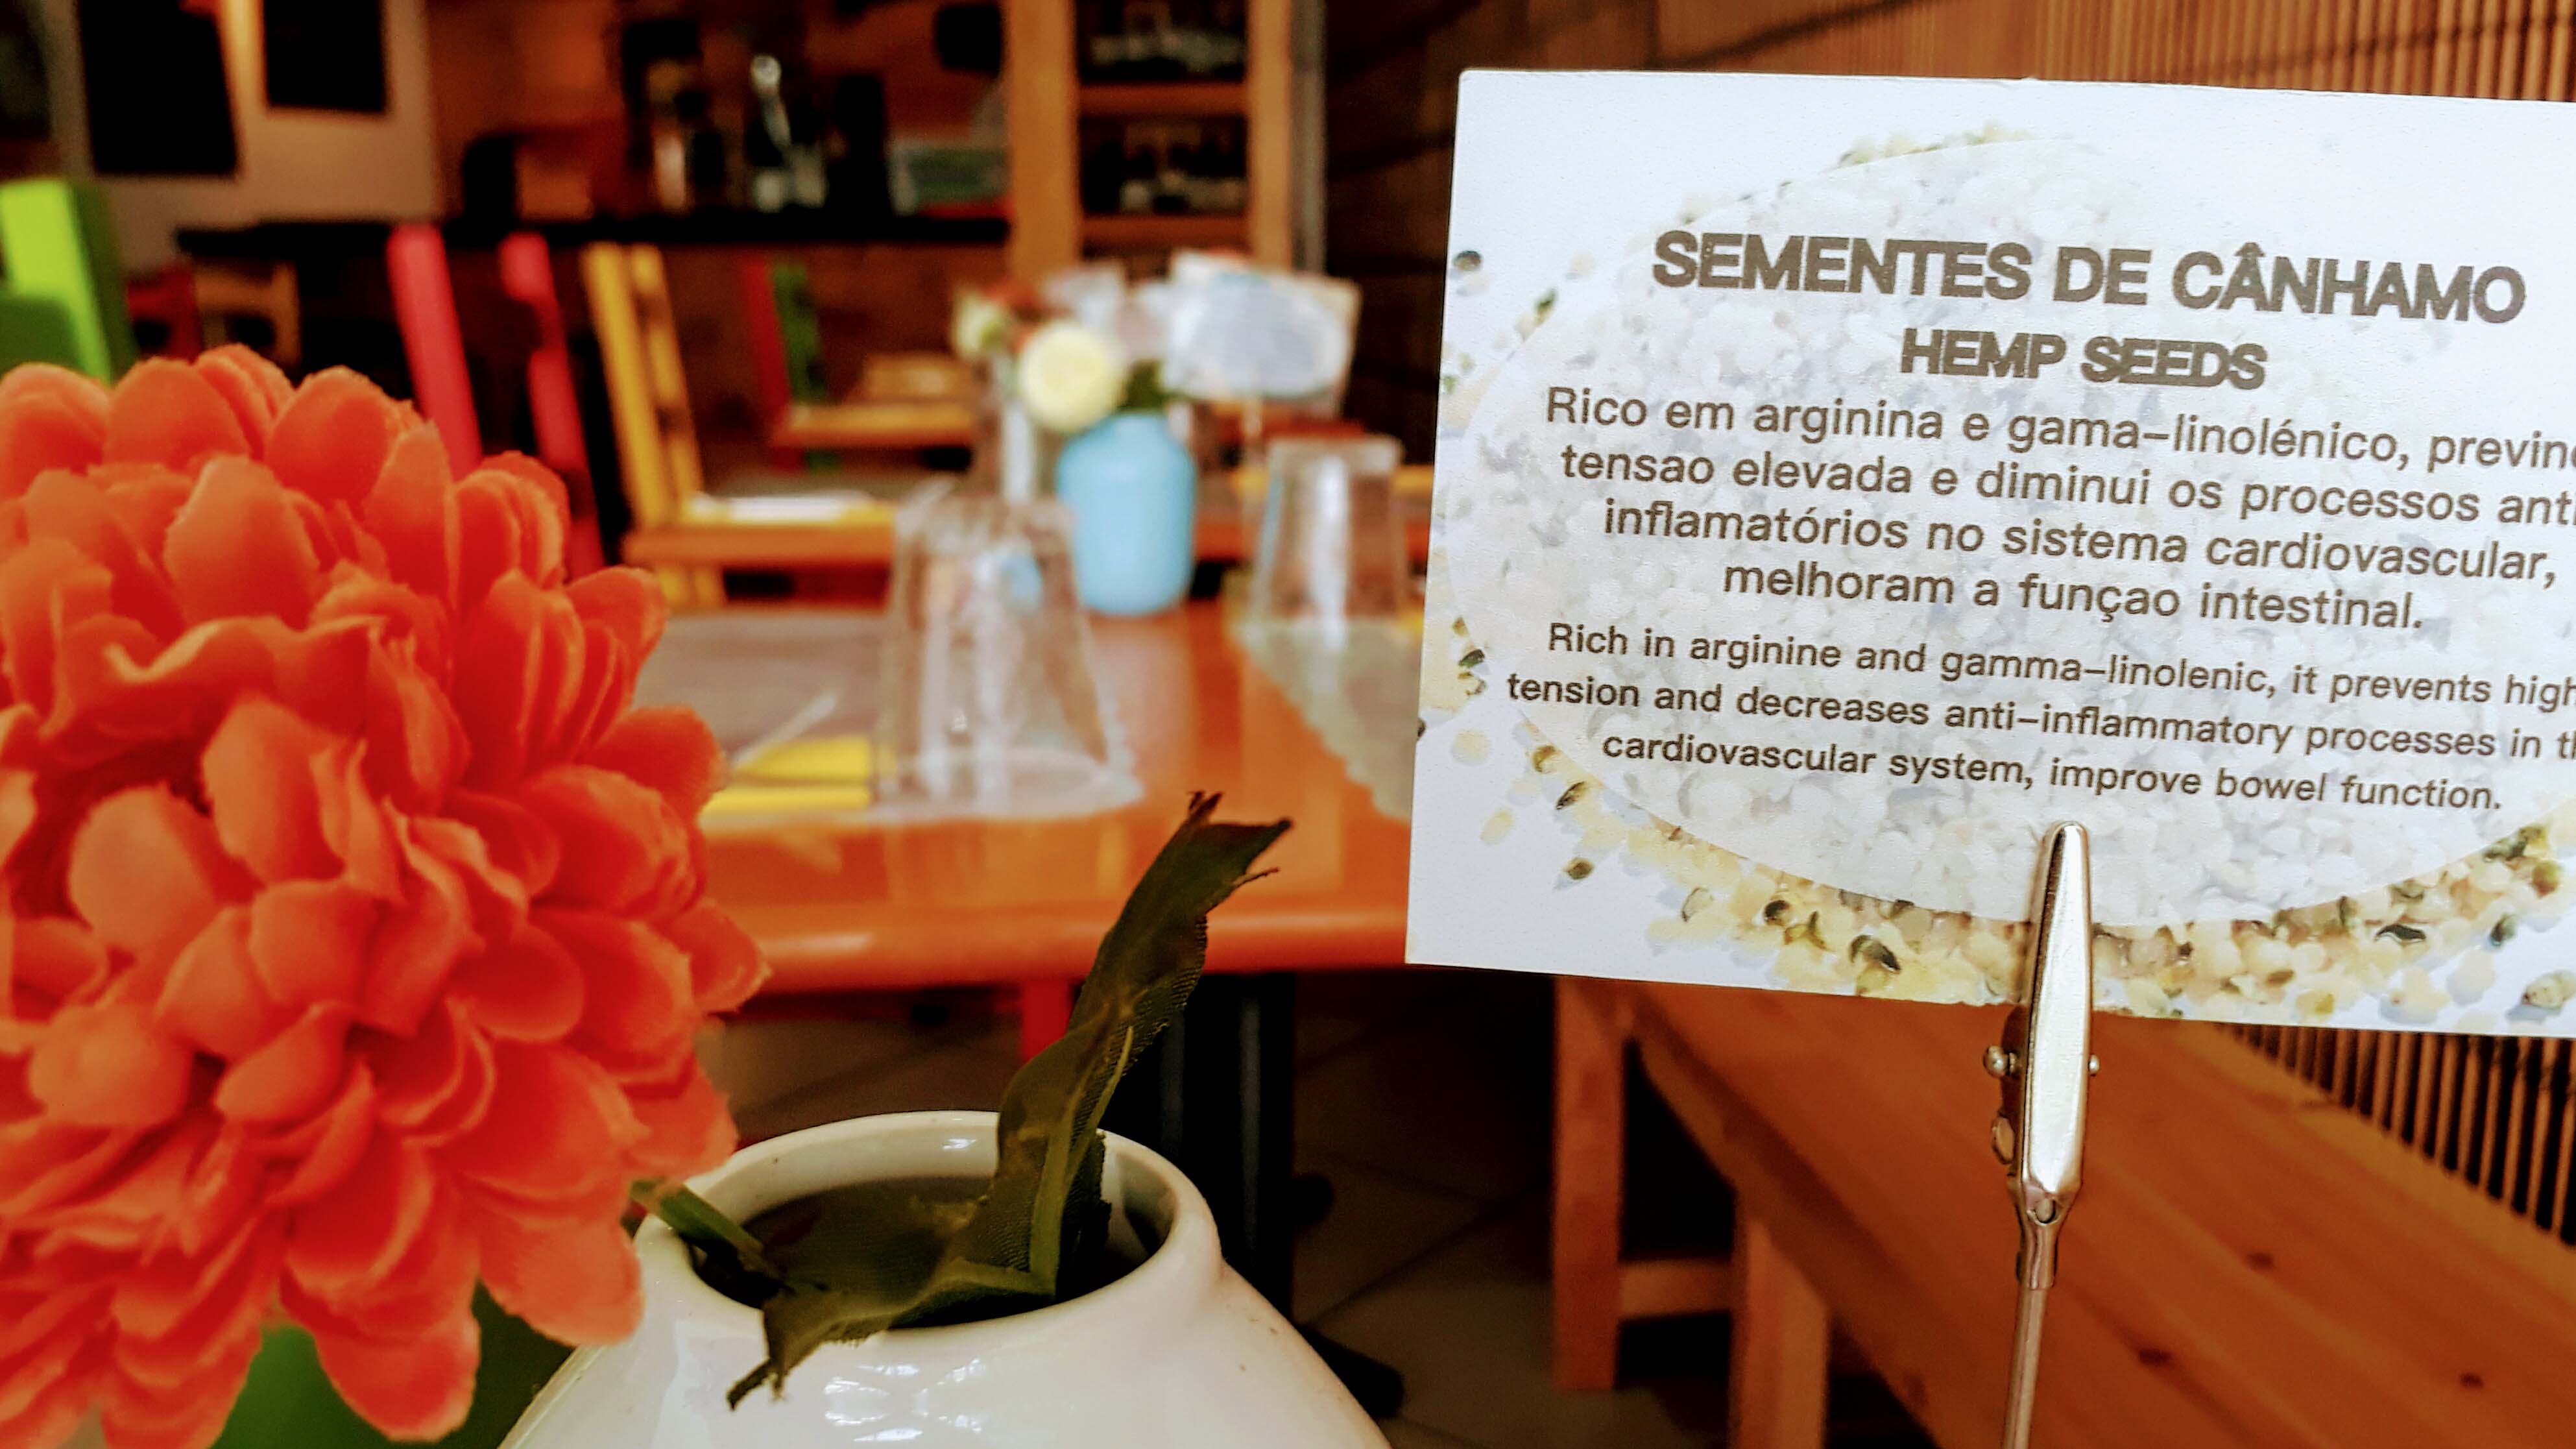 SEMENTES DE CÂNHAMO
HEMP SEEDS
Rico em arginina e gama-linolénico,
tensao elevada e diminui os processos
inflamatórios no sistema cardiovascular,
melhoram a funçao intestinal.
Rich in arginine and gamma-linolenic, it prevents high
tension and decreases anti-inflammatory processes in
cardiovascular system, improve bowel function.